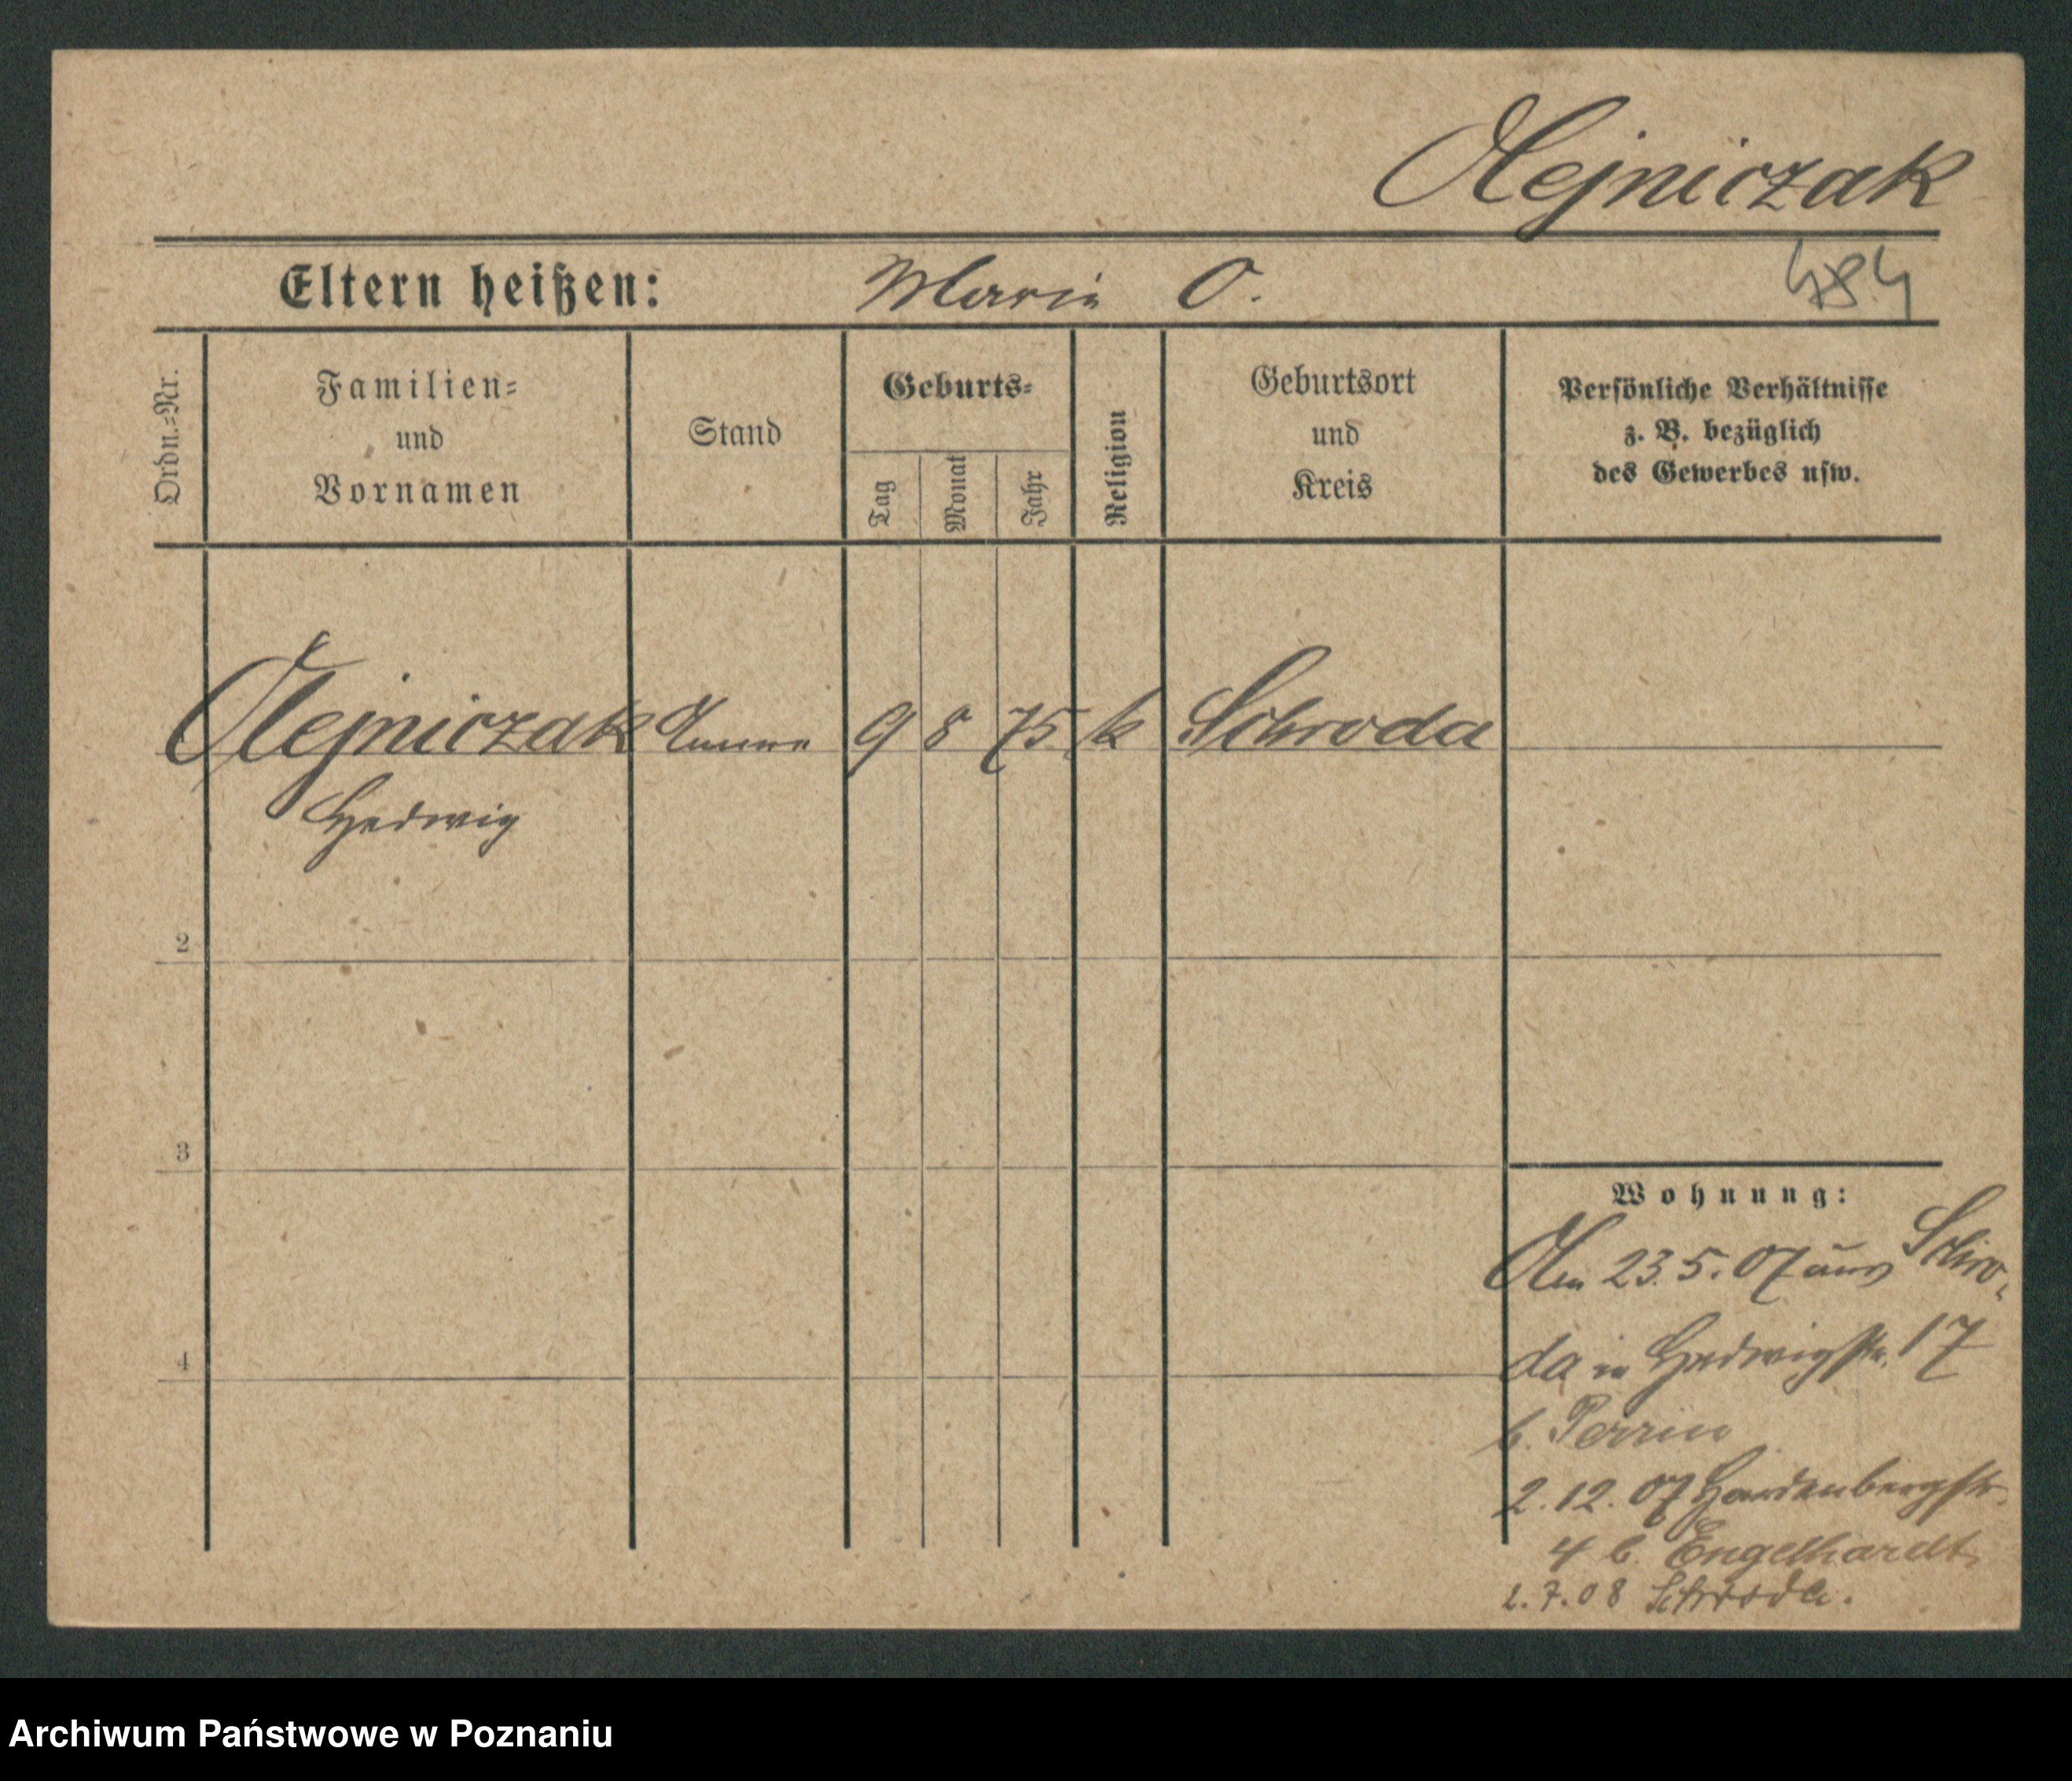 Olejniczak
Eltern heißen: Marie O. 484
Ordn.=Nr.
Familien=
und
Vornamen
Stand
Geburts=
Tag
Monat
Jahr
Religion
Geburtsort
und
Kreis
Persönliche Verhältnisse
z. B. bezüglich
des Gewerbes usw.
Olejniczak Amme 9 8 75 k Schroda
Hedwig
2
3
4
Wohnung:
Am 23.5.07 aus Schro-
da in Hedwigstr. 17
b. Perrin
2.12.07 Hardenbergstr.
4 b. Engelhardt
2.7.08 Schroda.
Archiwum Państwowe w Poznaniu